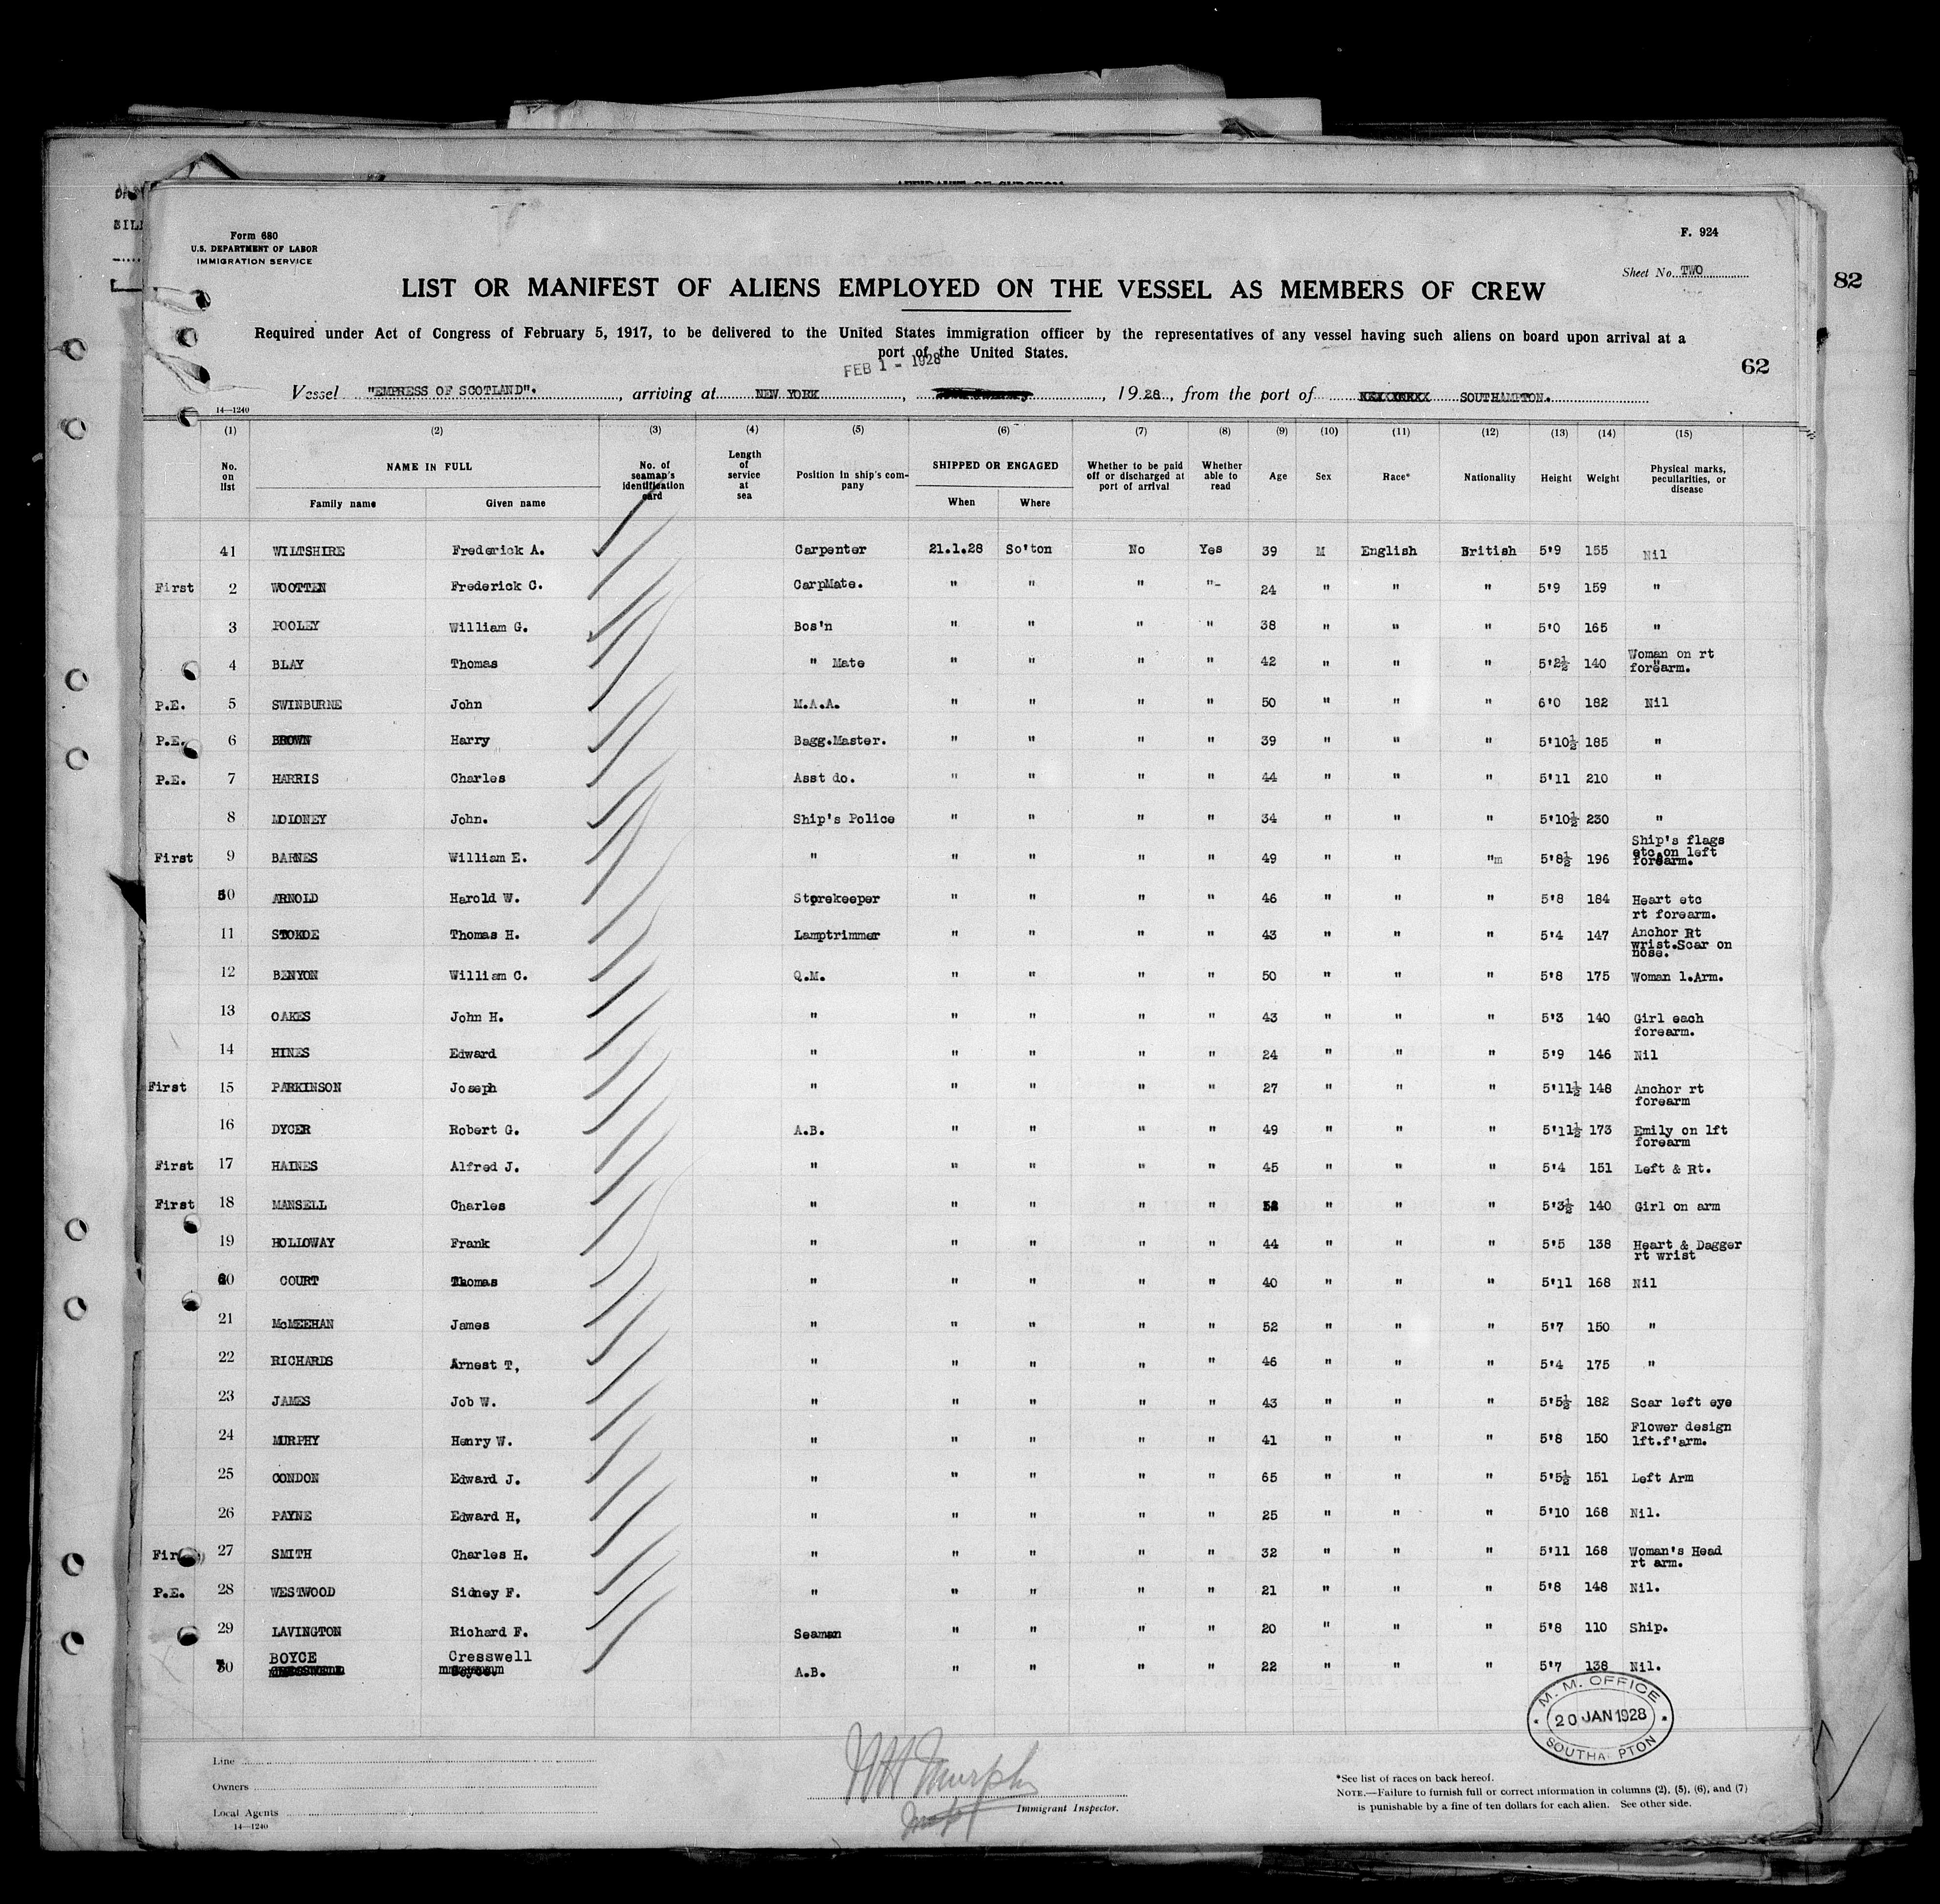 AFFIDAVIT OF SURGEON
Form 680
U.S. DEPARTMENT OF LABOR
IMMIGRATION SERVICE
F. 924
Sheet No. TWO
82
LIST OR MANIFEST OF ALIENS EMPLOYED ON THE VESSEL AS MEMBERS OF CREW
Required under Act of Congress of February 5, 1917, to be delivered to the United States immigration officer by the representatives of any vessel having such aliens on board upon arrival at a
port of the United States.
FEB 1 - 1928
62
Vessel "EMPRESS OF SCOTLAND"., arriving at NEW YORK, , 1928, from the port of SOUTHAMPTON.
14—1240
(1) (2) (3) (4) (5) (6) (7) (8) (9) (10) (11) (12) (13) (14) (15)
No. on list NAME IN FULL Family name Given name No. of seaman's identification card Length of service at sea Position in ship's company SHIPPED OR ENGAGED When Where Whether to be paid off or discharged at port of arrival Whether able to read Age Sex Race* Nationality Height Weight Physical marks, peculiarities, or disease
41 WILTSHIRE Frederick A. Carpenter 21.1.28 So'ton No Yes 39 M English British 5'9 155 Nil
First 2 WOOTTEN Frederick C. CarpMate. " " " "- 24 " " " 5'9 159 "
3 POOLEY William G. Bos'n " " " " 38 " " " 5'0 165 "
4 BLAY Thomas " Mate " " " " 42 " " " 5'2½ 140 Woman on rt forearm.
P.E. 5 SWINBURNE John M.A.A. " " " " 50 " " " 6'0 182 Nil
P.E. 6 BROWN Harry Bagg.Master. " " " " 39 " " " 5'10½ 185 "
P.E. 7 HARRIS Charles Asst do. " " " " 44 " " " 5'11 210 "
8 MOLONEY John. Ship's Police " " " " 34 " " " 5'10½ 230 "
First 9 BARNES William E. " " " " " 49 " " "m 5'8½ 196 Ship's flags etc on left forearm.
50 ARNOLD Harold W. Storekeeper " " " " 46 " " " 5'8 184 Heart etc rt forearm.
11 STOKOE Thomas H. Lamptrimmer " " " " 43 " " " 5'4 147 Anchor Rt wrist.Scar on nose.
12 BENYON William C. Q.M. " " " " 50 " " " 5'8 175 Woman l.Arm.
13 OAKES John H. " " " " " 43 " " " 5'3 140 Girl each forearm.
14 HINES Edward " " " " " 24 " " " 5'9 146 Nil
First 15 PARKINSON Joseph " " " " " 27 " " " 5'11½ 148 Anchor rt forearm
16 DYCER Robert G. A.B. " " " " 49 " " " 5'11½ 173 Emily on lft forearm
First 17 HAINES Alfred J. " " " " " 45 " " " 5'4 151 Left & Rt.
First 18 MANSELL Charles " " " " " " " " 5'3½ 140 Girl on arm
19 HOLLOWAY Frank " " " " " 44 " " " 5'5 138 Heart & Dagger rt wrist
60 COURT Thomas " " " " " 40 " " " 5'11 168 Nil
21 McMEEHAN James " " " " " 52 " " " 5'7 150 "
22 RICHARDS Arnest T, " " " " " 46 " " " 5'4 175 "
23 JAMES Job W. " " " " " 43 " " " 5'5½ 182 Scar left eye
24 MURPHY Henry W. " " " " " 41 " " " 5'8 150 Flower design lft.f'arm.
25 CONDON Edward J. " " " " " 65 " " " 5'5½ 151 Left Arm
26 PAYNE Edward H, " " " " " 25 " " " 5'10 168 Nil.
27 SMITH Charles H. " " " " " 32 " " " 5'11 168 Woman's Head rt arm.
P.E. 28 WESTWOOD Sidney F. " " " " " 21 " " " 5'8 148 Nil.
29 LAVINGTON Richard F. Seaman " " " " 20 " " " 5'8 110 Ship.
70 BOYCE Cresswell A.B. " " " " 22 " " " 5'7 138 Nil.
M. M. OFFICE
20 JAN 1928
SOUTHA PTON
Line
Owners
Local Agents
14—1240
Immigrant Inspector.
*See list of races on back hereof.
NOTE.—Failure to furnish full or correct information in columns (2), (5), (6), and (7)
is punishable by a fine of ten dollars for each alien. See other side.